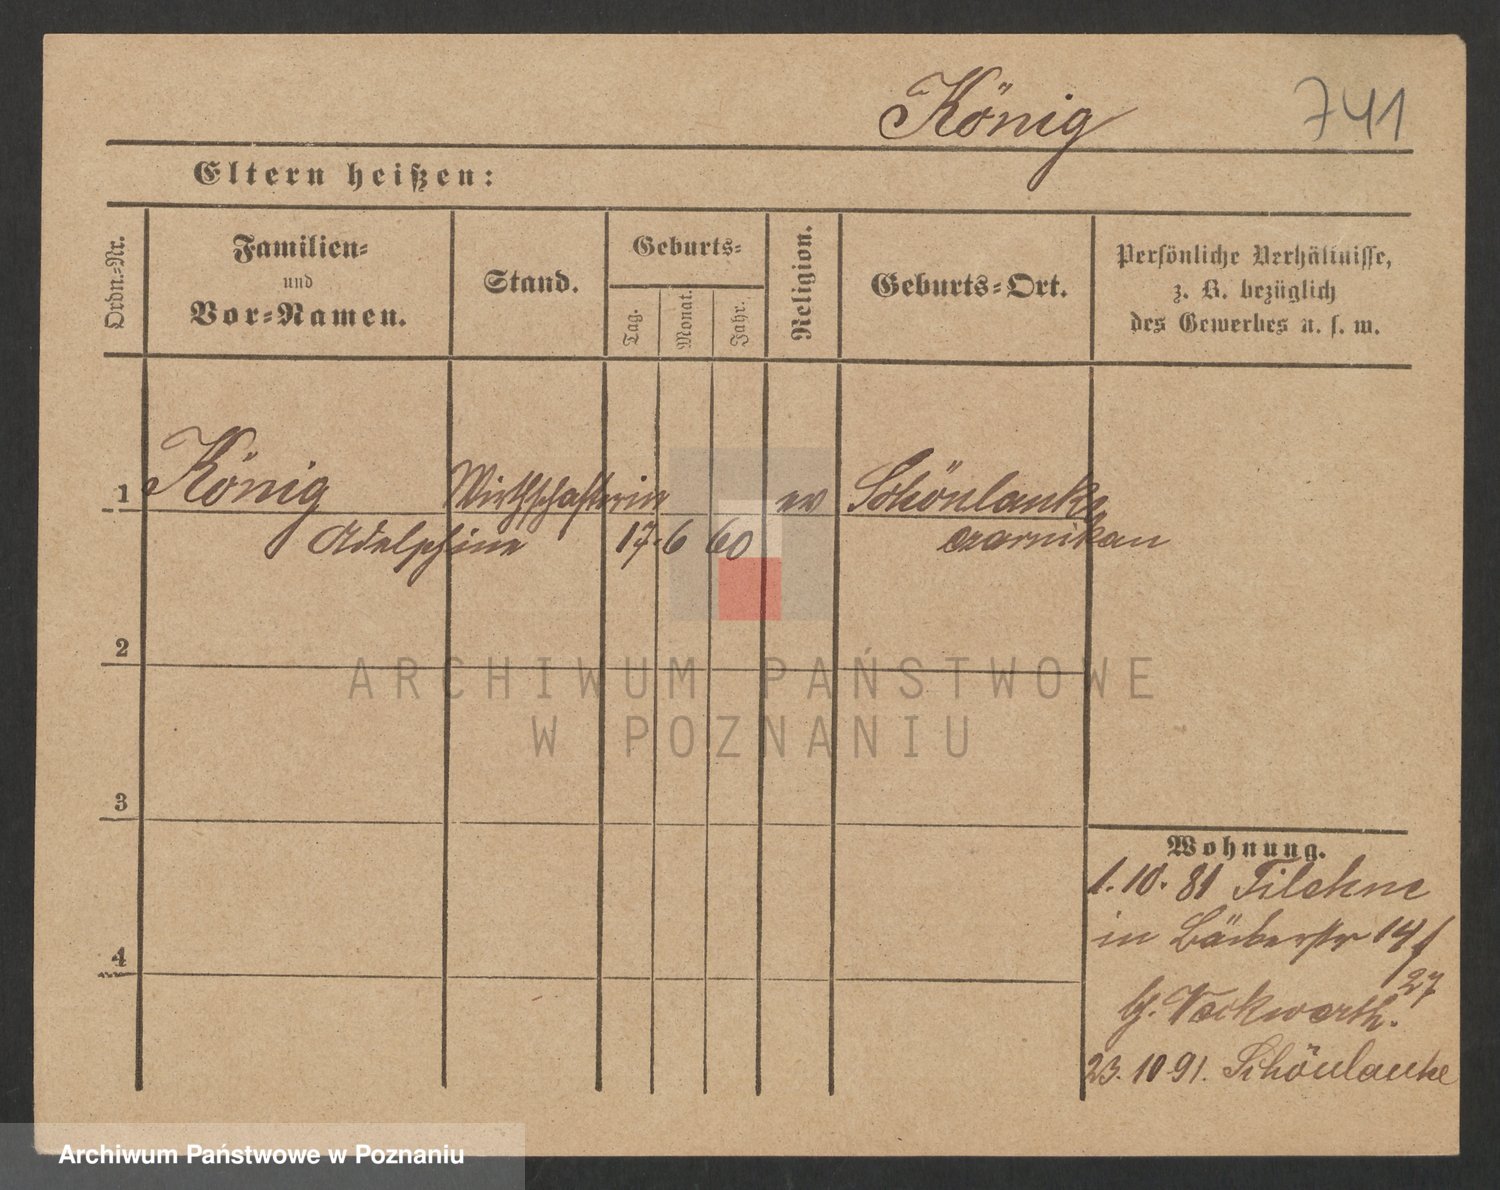 König 741
Eltern heißen:
Ordn.-Nr.
Familien-
und
Vor-Namen.
Stand.
Geburts-
Tag.
Monat.
Jahr.
Religion.
Geburts-Ort.
Persönliche Verhältnisse,
z. B. bezüglich
des Gewerbes u. s. w.
1 König Wirthschafterin ev Schönlanke
Adelphine 17. 6 60 Czarnikau
2
3
4
Wohnung.
1. 10. 81 Filehne
in Bäckerstr 14/
27
b/.
23. 10 91. Schönlanke
ARCHIWUM PAŃSTWOWE
W POZNANIU
Archiwum Państwowe w Poznaniu